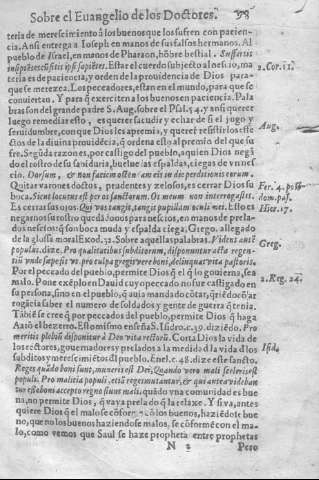 Sobre el Euangelio de los Doctores. 98
teria de merescimiento à los buenos que los sufren con pacien-
cia. Ansi entrega a Ioseph en manos de sus falsos hermanos. Al
pueblo de Israel, en manos de Pharaon, hõbre bestial. Suffertis
insipientes cũ sitis ipsi sapiẽtes. Estar el cuerdo subjecto al nescio, ma
teria es de paciencia, y orden de la prouidencia de Dios para-
que se merezca. Los peccadores, estan en el mundo, para que se
conuiertan. Y para q̃ exercitẽ a los buenos en paciencia. Pala
bras son del grande padre S. Aug. sobre el Psal. 54. y ansi querer
luego remediar esto, es querer sacudir y echar de si el jugo y
seruidumbre, con que Dios les apremia, y querer resistir los effe
ctos de la diuina prouidẽcia, q̃ ordena esto al premio del que su
fre. Segũda razon es, por castigo del pueblo, a quien Dios negã
do el rostro de su sabiduria, buelue las espaldas, ciegas de vn nes
cio. Dorsum, & non faciem ostendam eis in die perditionis eorum.
Quitar varones doctos, prudentes y zelosos, es cerrar Dios su
boca. Sicut locutus est per os sanctorum. Os meum non interrogastis.
Es cerrar sus ojos: Qui vos tangit, tangit pupillam oculi mei. Esto es
negarnos su rostro quedãdonos para nescios, en manos de prela-
dos nescios: q̃ son boca muda y espalda ciega. Griego. allegado
de la glossa moral Exod. 32. Sobre aquellas palabras. Vident autẽ
populus. dize. Pro qualitatibus subditorum, disponuntur acta regen-
tiũ vnde sæpe fit vt pro culpa gregis vere boni, delinquat vita pastoris.
Por el peccado del pueblo, permite Dios q̃ el q̃ lo gouierna, sea
malo. Pone exẽplo en Dauid cuyo peccado no fue castigado en
su persona, sino en el pueblo, q̃ auia mandado cõtar, q̃riẽdo con ar
rogãcia saber el numero de soldados y gente de guerra q̃ tenia.
Tãbiẽ se cree q̃ por peccados del pueblo, permite Dios q̃ haga
Aarõ el bezerro. Esto mismo enseña S. Isidro. c. 39. diziẽdo. Pro
meritis plebiũ disponitur à Deo vita rectorũ. Corta Dios la vida de
los rectores, gouernadores y prelados a la medida d̃ la vida d̃ los
subditos y merescimiẽtos d̃l pueblo. Ẽ nel. c. 48. dize este sancto.
Reges quãdo boni sunt, muneris est Dei, Quando vero mali sceleris est
populi. Pro malitia populi, etiã reges mutantur, & qui ante videban
tur esse boni accepto regno fiunt mali, quãdo vna comunidad es bue
na, no permite Dios, q̃ vaya prelado q̃ la relaxe. Y si va, antes
quiere Dios q̃ el malo se cõforme cõ los buenos, haziẽdole bue
no, que no los buenos haziendose malos, se cõformẽ con el ma-
lo, como vemos que Saul se haze propheta entre prophetas
N 2 Pero
2. Cor. 11.
Aug.
Hier. 17.
Greg.
2. Reg. 24.
Isid.